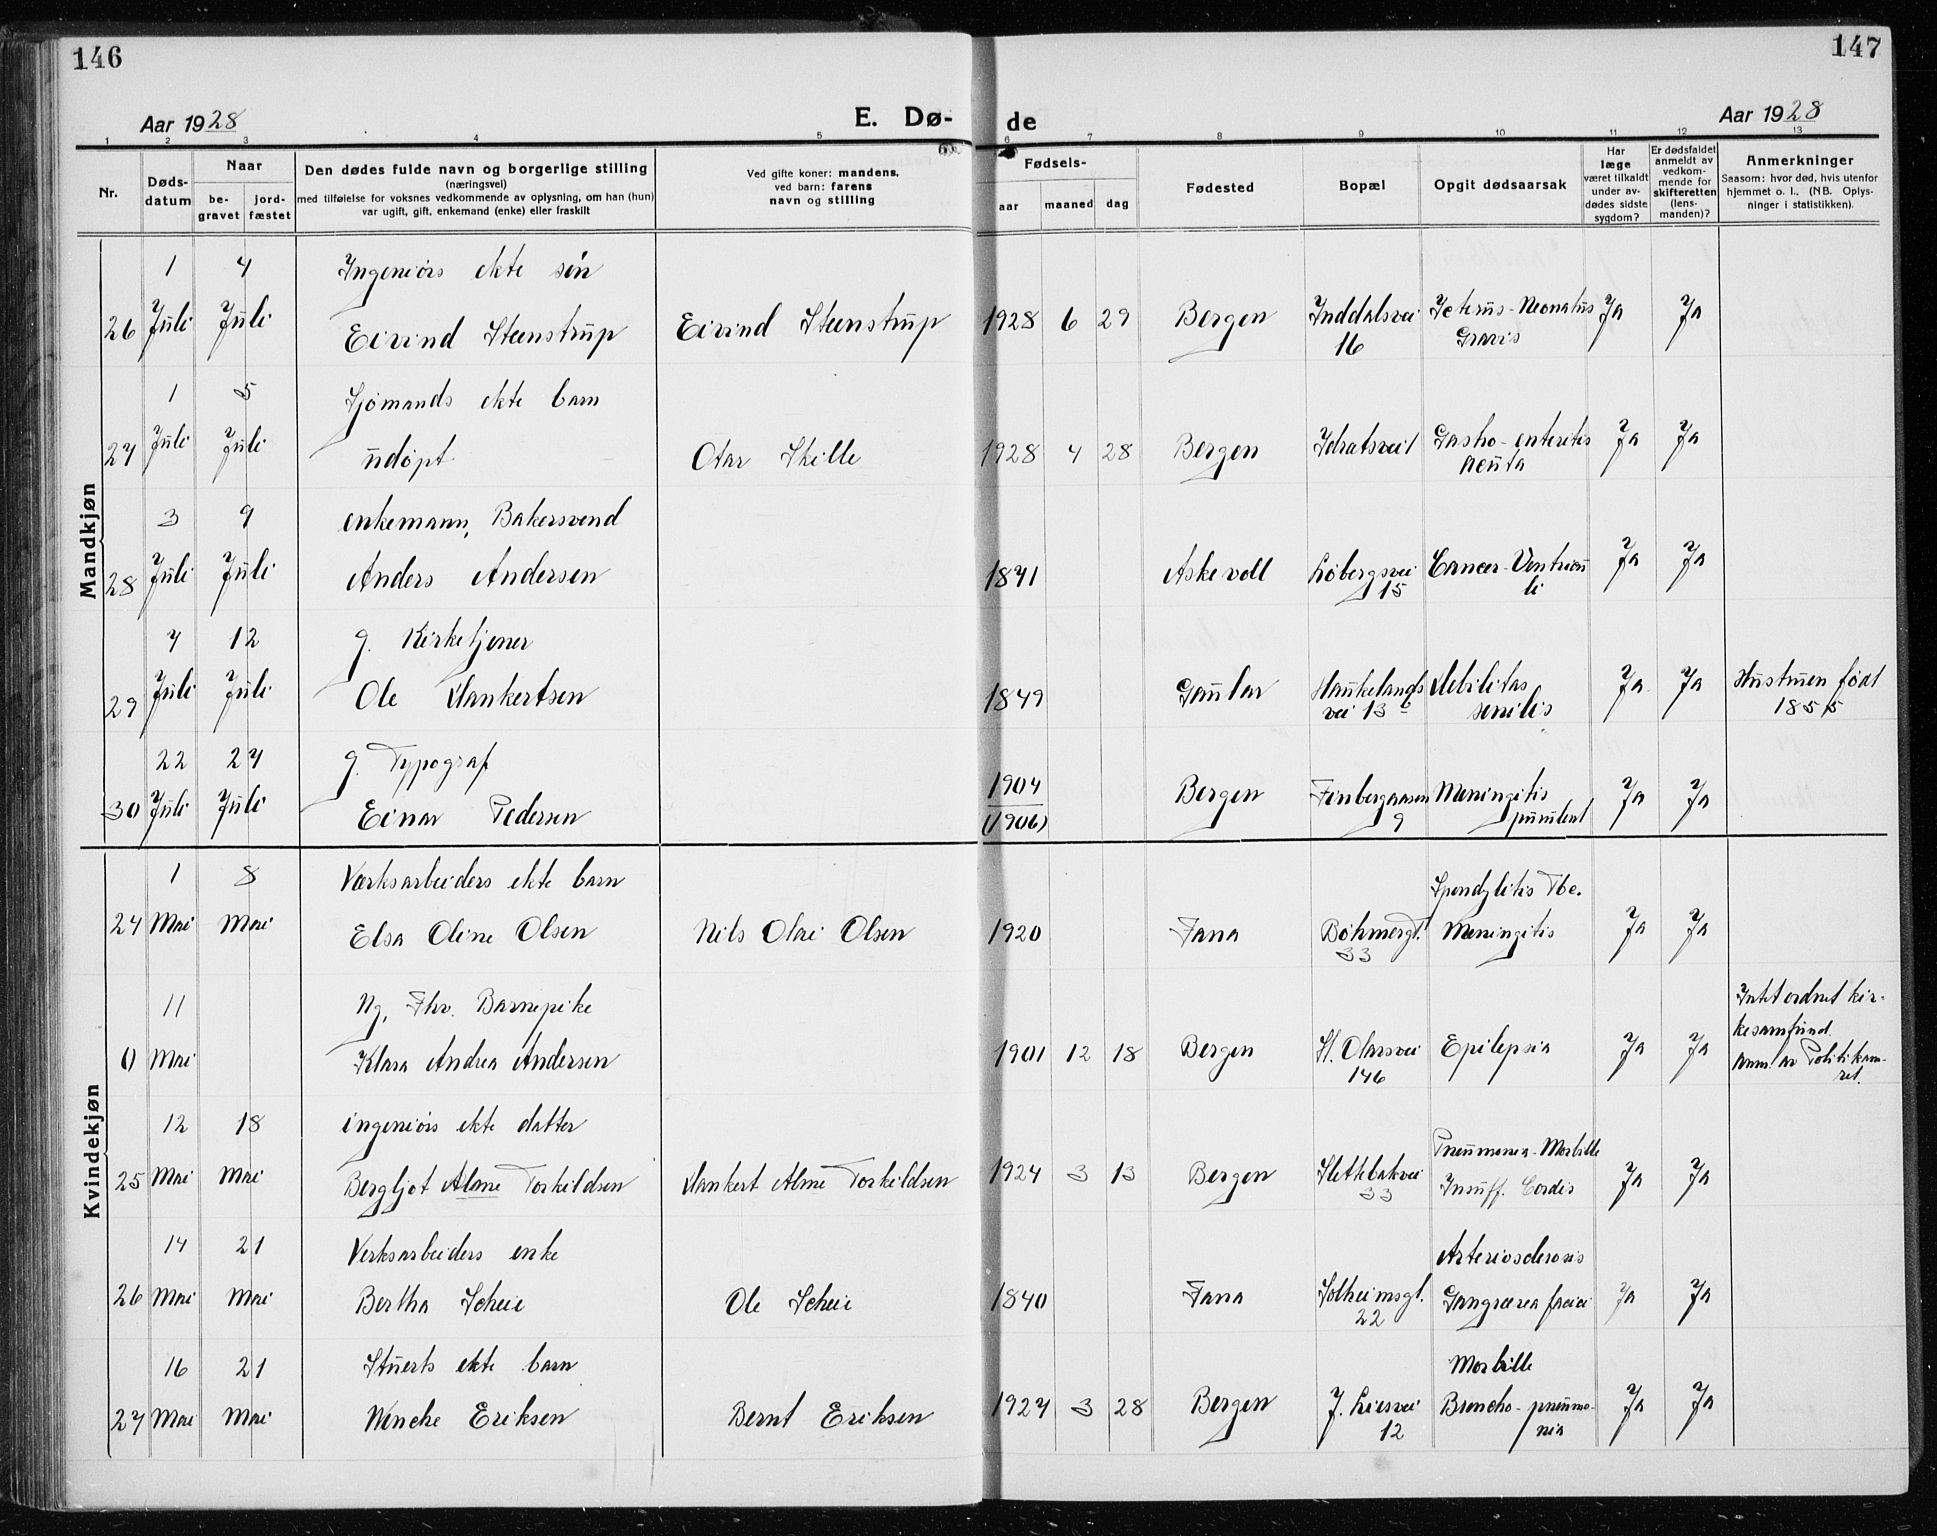 146
147
Aar 1928
E. Dø-
de
Aar 1928
1 2 3 4 5 6 7 8 9 10 11 12 13
Nr.
Døds-
datum
Naar
be-
gravet
jord-
fæstet
Den dødes fulde navn og borgerlige stilling
(næringsvei)
med tilføielse for voksnes vedkommende av oplysning, om han (hun)
var ugift, gift, enkemand (enke) eller fraskilt
Ved gifte koner: mandens,
ved barn: farens
navn og stilling
Fødsels-
aar
maaned
dag
Fødested
Bopæl
Opgit dødsaarsak
Har
læge
været tilkaldt
under av-
dødes sidste
sygdom?
Er dødsfaldet
anmeldt av
vedkom-
mende for
skifteretten
(lens-
manden)?
Anmerkninger
Saasom: hvor død, hvis utenfor
hjemmet o. l., (NB. Oplys-
ninger i statistikken).
Mandkjøn
1 4 Ingeniørs ekte søn
26 Juli Juli Eivind Steenstrup Eivind Steenstrup 1928 6 29 Bergen Inddalsvei Icterus-Neonatus Ja Ja
16 Gravis
1 5 Sjømands ekte barn
27 Juli Juli udøpt Otar Skille 1928 4 28 Bergen Idratsvei 1 Gastro-enteritis Ja Ja
acuta
3 9 enkemann, Bakersvend
28 Juli Juli Anders Andersen 1841 Askevoll Løbergsvei Cancer-Ventricu Ja Ja
15 li
7 12 g. Kirketjener
29 Juli Juli Ole Dankertsen 1849 Gaular Haukelands Debilitas Ja Ja Hustruen født
vei 13 c senilis 1855
22 27 g. Typograf
30 Juli Juli Einar Pedersen 1904 Bergen Finbergaasen Meningitis Ja Ja
(1906) 9 purulent
Kvindekjøn
1 8 Verksarbeiders ekte barn Spondylitis Tbc.
24 Mai Mai Elsa Oline Olsen Nils Olai Olsen 1920 Fana Bøhmergt. Meningitis Ja Ja
33
11 Ug. Fhv. Barnepike Intet ordnet kir-
kesamfund.
0 Mai Klara Andrea Andersen 1901 12 18 Bergen St. Olavsvei Epilepsia Ja Ja Anm. av Politikam-
146 ret.
12 18 ingeniørs ekte datter Pneumonia-Morbille
25 Mai Mai Bergljot Alme Torkildsen Dankert Alme Torkildsen 1924 3 13 Bergen Slettebakvei Insuff. Cordis Ja Ja
33
14 21 Verksarbeiders enke Arteriosclerosis
26 Mai Mai Bertha Scheie Ole Scheie 1840 Fana Solheimsgt. Gangræna faciei Ja Ja
22
16 21 Stuerts ekte barn Morbille
27 Mai Mai Wenche Eriksen Bernt Eriksen 1927 3 28 Bergen J. Liesvei Broncho-pneumo- Ja Ja
12 nia